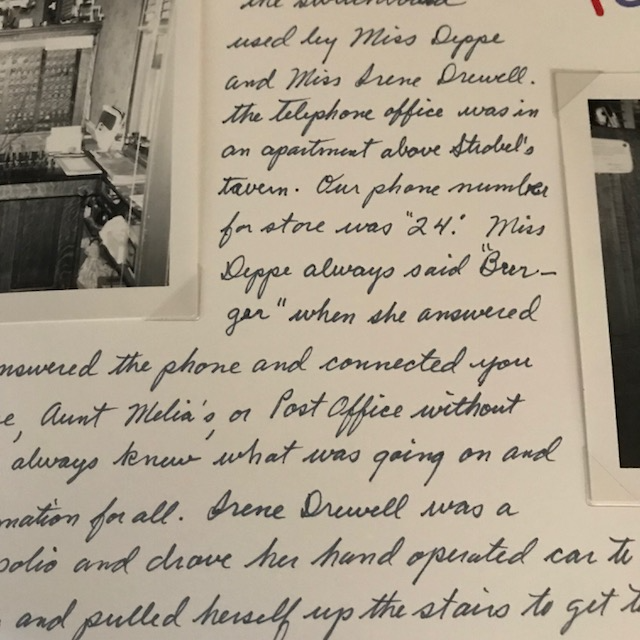 the switchboard
used by Miss Deppe
and Miss Irene Drewell.
the telephone office was in
an apartment above Strobel's
tavern. Our phone number
for store was "24." Miss
Deppe always said "Ber-
ger" when she answered
nswered the phone and connected you
e, Aunt Melia's, or Post Office without
always knew what was going on and
mation for all. Irene Drewell was a
polio and drove her hand operated car to
and pulled herself up the stairs to get t